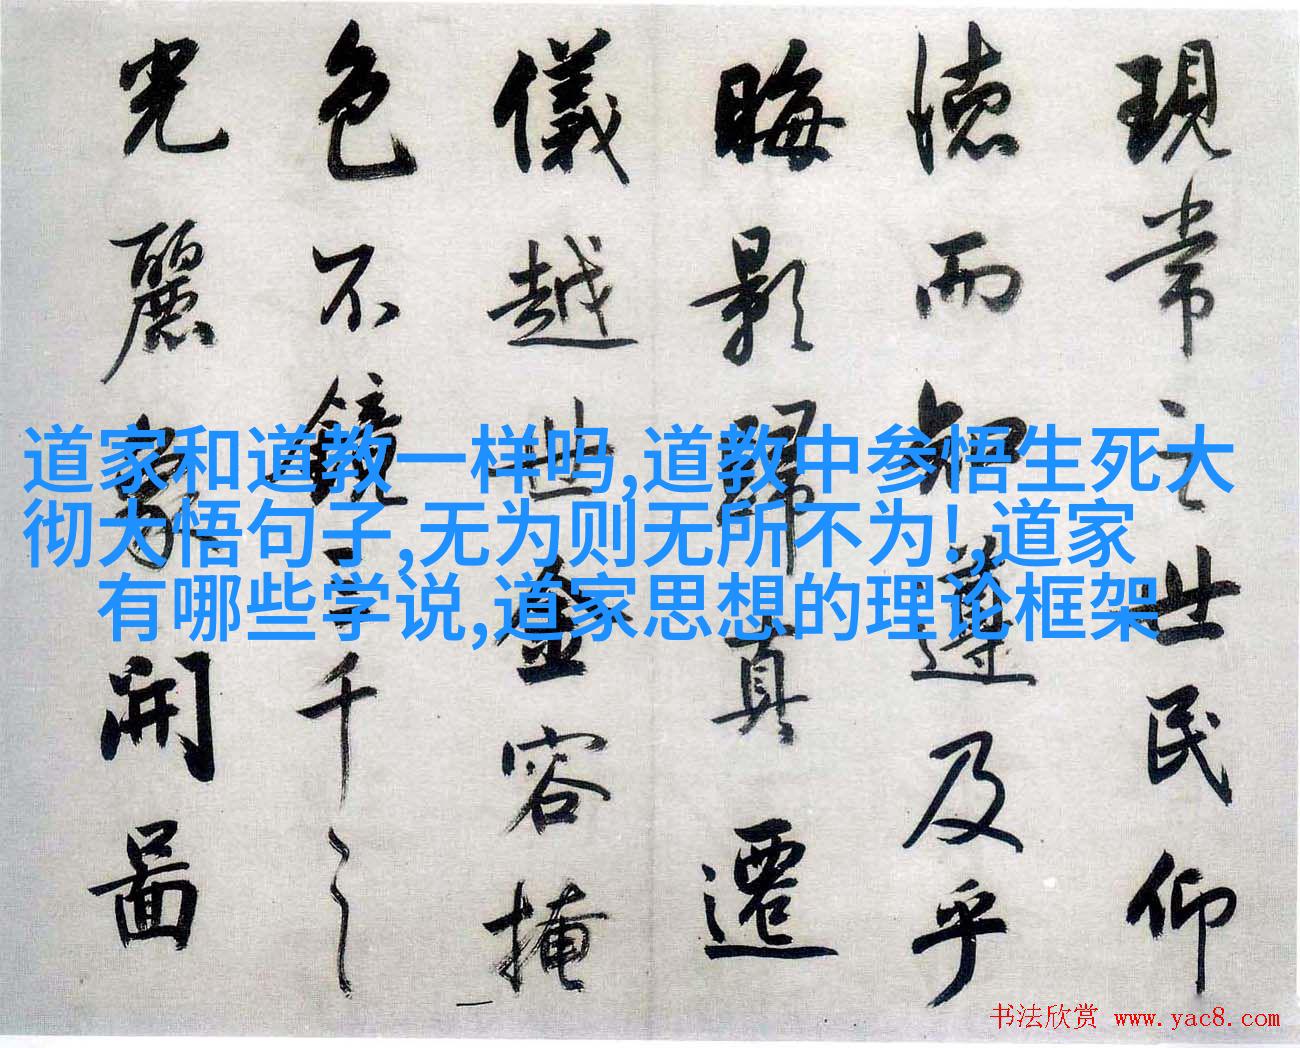 現常之世民仰
德而知遵及乎
晦影歸真遷
儀越世金容掩
色不鏡三千之
光麗象開圖
道家和道教一样吗,道教中参悟生死大
彻大悟句子,无为则无所不为!,道家
有哪些学说,道家思想的理论框架
书法欣赏 www.yac8.com